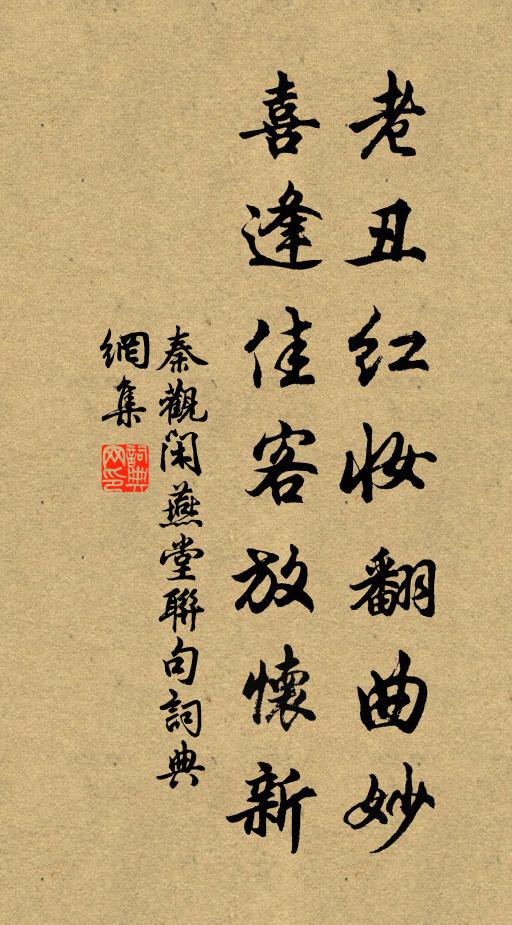 老丑红妆翻曲妙
喜逢佳客放怀新
秦觀闲燕堂聯句詞典
網集
詞典
网印